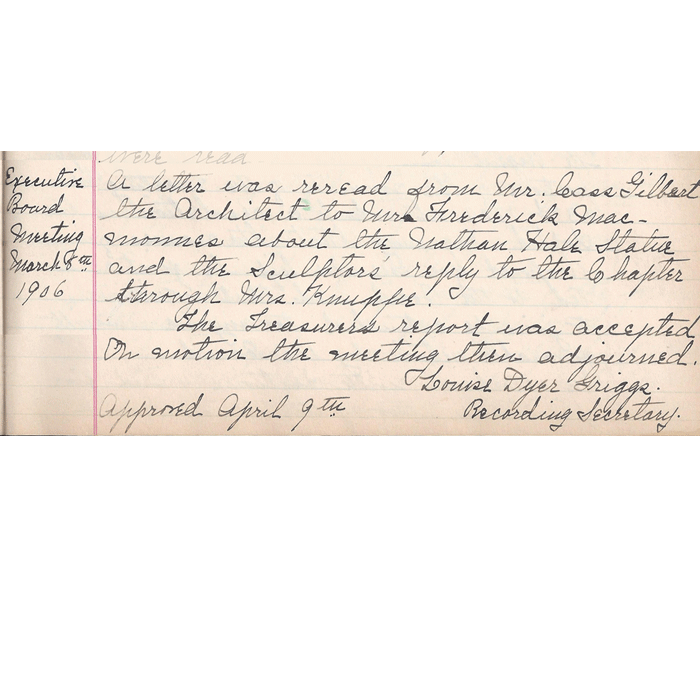 were read
Executive
Board
Meeting
March 8th
1906
A letter was reread from Mr. Cass Gilbert
the Architect to Mr. Frederick Mac-
monnes about the Nathan Hale Statue
and the Sculptors reply to the Chapter
through Mrs. Knuppe.
The Treasurers report was accepted
On motion the meeting then adjourned.
Louise Dyer Griggs.
Approved April 9th
Recording Secretary.